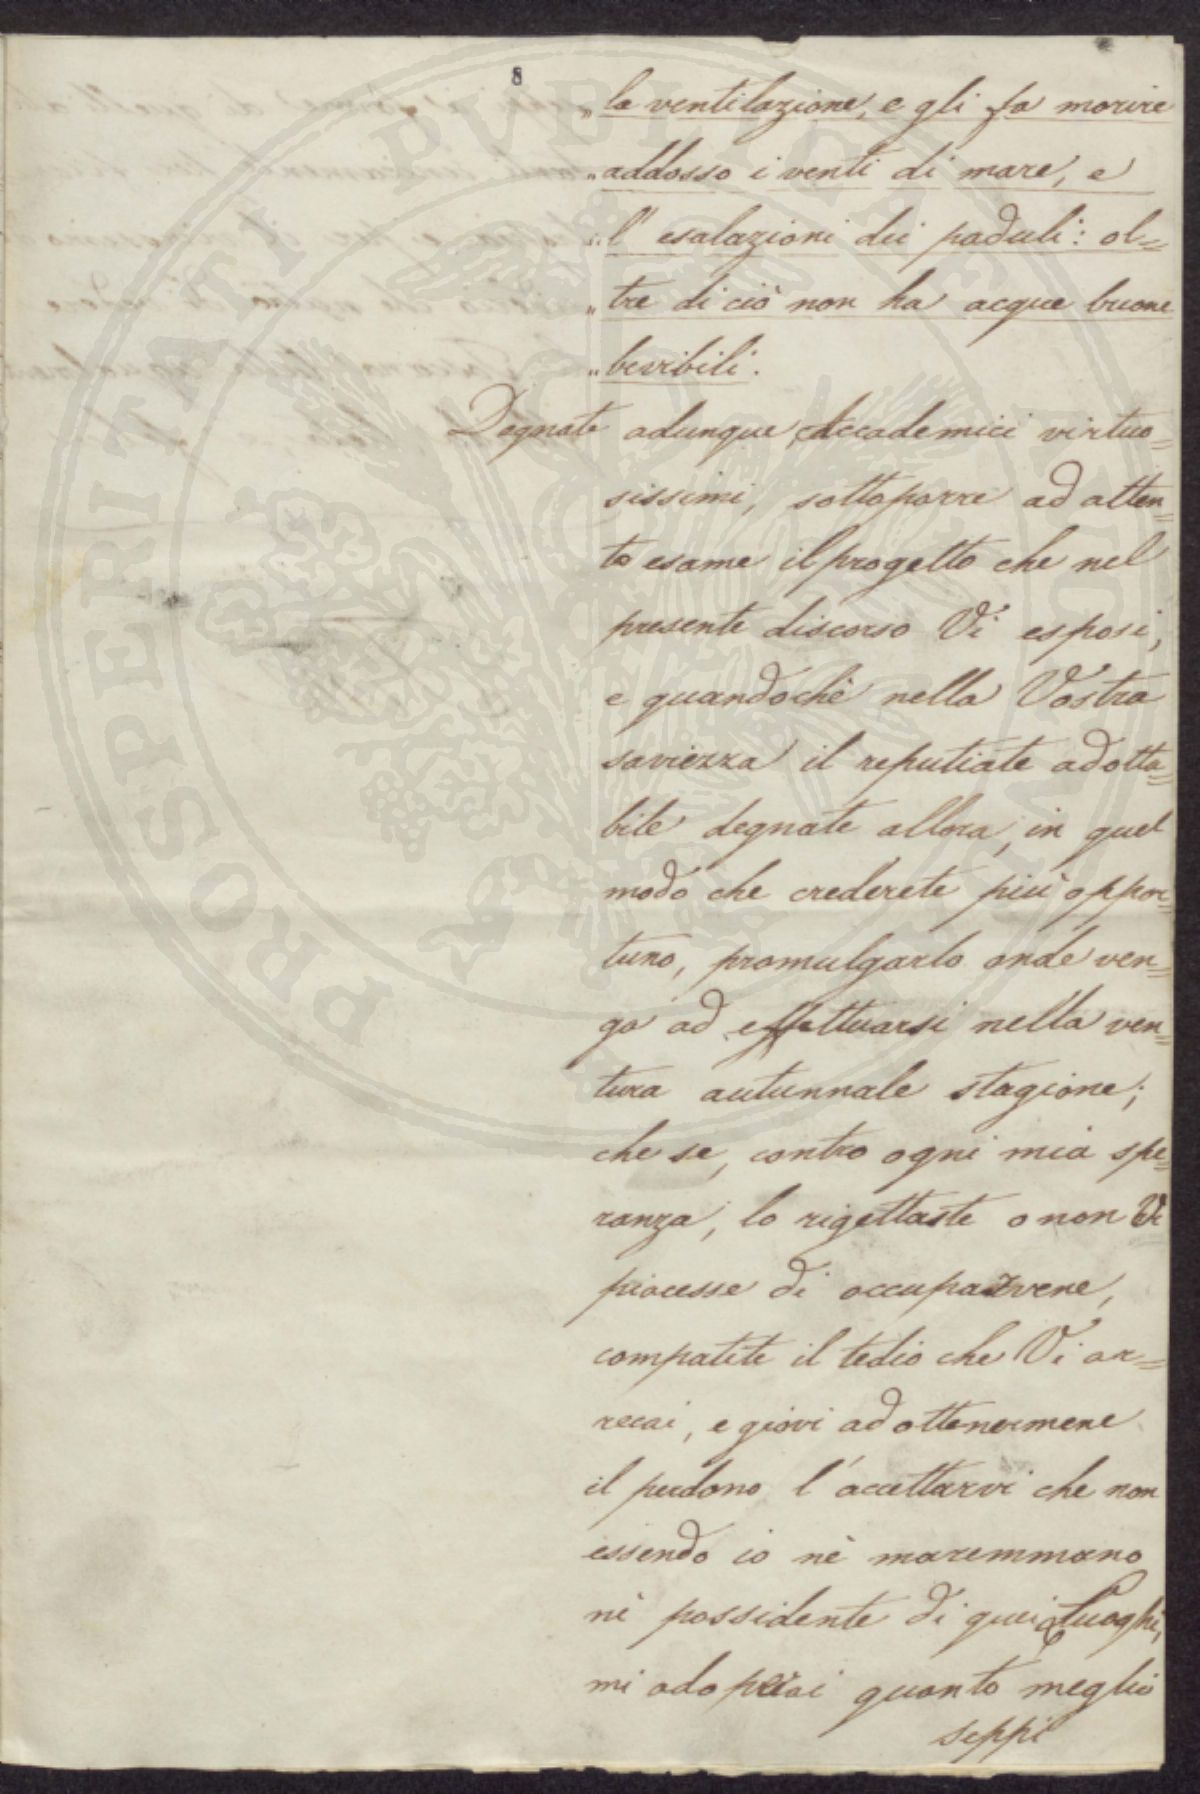 8
„la ventilazione, e gli fa morire
„addosso i venti di mare, e
„l'esalazioni dei paduli: ol=
„tre di ciò non ha acque buone
„bevibili.
Degnate adunque Accademici virtuo=
sissimi, sottoporre ad atten=
to esame il progetto che nel
presente discorso Vi esposi,
e quandochè nella Vostra
saviezza il reputiate adotta=
bile degnate allora, in quel
modo che crederete più oppor=
tuno, promulgarlo onde ven=
ga ad effettuarsi nella ven=
tura autunnale stagione;
che se, contro ogni mia spe=
ranza, lo rigettaste o non Vi
piacesse di occuparvene,
compatite il tedio che Vi ar=
recai, e giovi ad ottenermene
il perdono l'accettarvi che non
essendo io nè maremmano
nè possidente di quei luoghi,
mi adoprai quanto meglio
seppi
PROSPERITATI PVBLICAE AVGENDAE